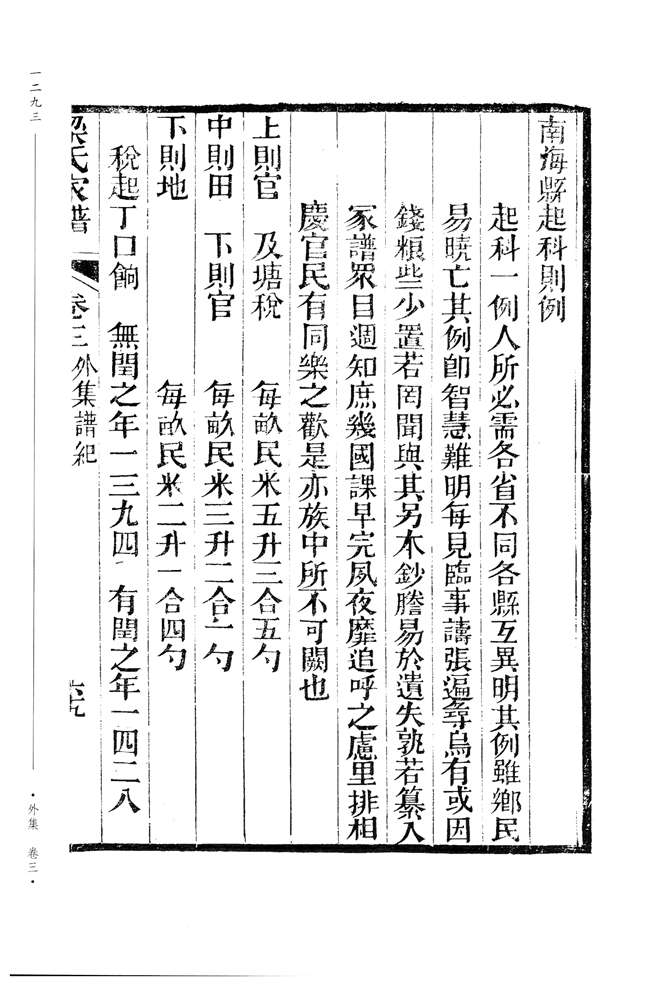 南海縣起科則例
起科一例人所必需各省不同各縣互異明其例雖鄉民
易曉亡其例卽智慧難明每見臨事譸張遍尋烏有或因
錢粮些少置若罔聞與其另本鈔謄易於遺失孰若纂入
家譜衆目週知庶幾國課早完夙夜靡追呼之慮里排相
慶官民有同樂之歡是亦族中所不可闕也
上則官 及塘稅 每畝民米五升三合五勺
中則田 下則官 每畝民米三升二合一勺
下則地 每畝民米二升一合四勺
稅起丁口餉 無閏之年一三九四 有閏之年一四二八
梁氏家譜 卷三 外集譜紀 六九
一二九三
·外集 卷三·